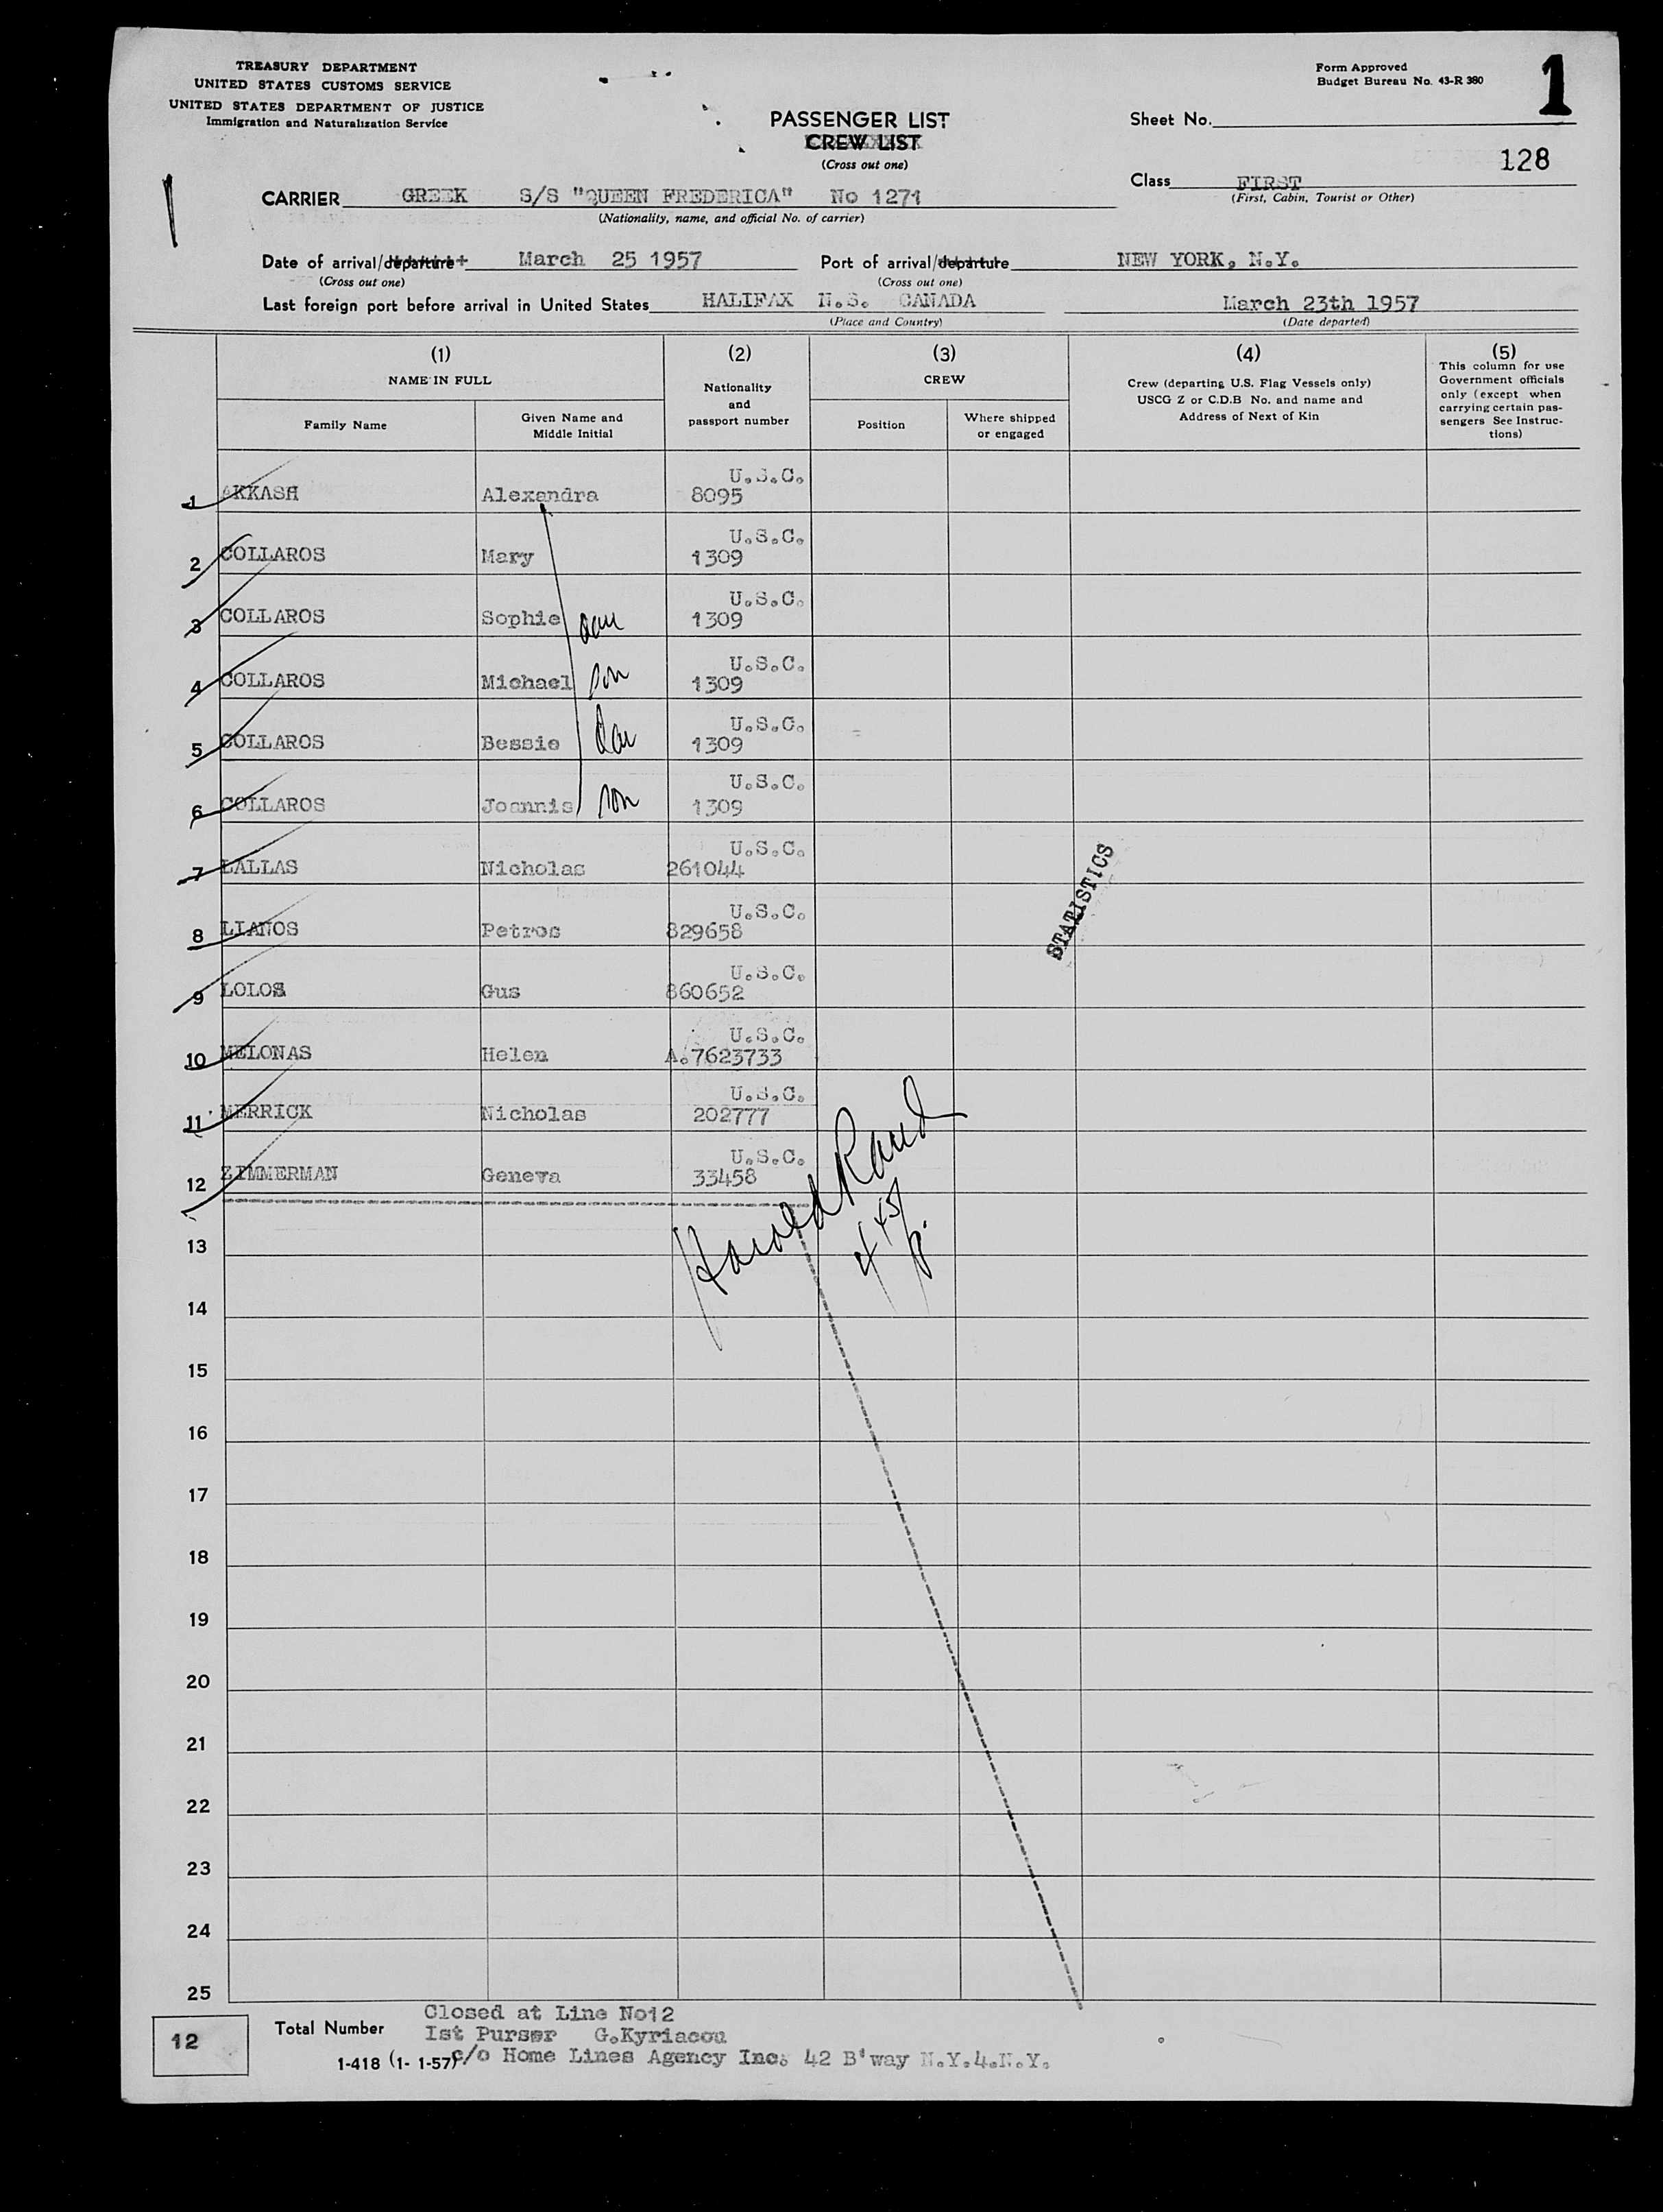 TREASURY DEPARTMENT
UNITED STATES CUSTOMS SERVICE
UNITED STATES DEPARTMENT OF JUSTICE
Immigration and Naturalization Service
Form Approved
Budget Bureau No. 43-R 380
1
PASSENGER LIST
CREW LIST
(Cross out one)
Sheet No.
128
Class FIRST
(First, Cabin, Tourist or Other)
CARRIER GREEK S/S "QUEEN FREDERICA" No 1271
(Nationality, name, and official No. of carrier)
Date of arrival/departure March 25 1957 Port of arrival/departure NEW YORK, N.Y.
(Cross out one) (Cross out one)
Last foreign port before arrival in United States HALIFAX N.S. CANADA March 23th 1957
(Place and Country) (Date departed)
(1) (2) (3) (4) (5)
NAME IN FULL
Family Name
Given Name and
Middle Initial
Nationality
and
passport number
CREW
Position
Where shipped
or engaged
Crew (departing U.S. Flag Vessels only)
USCG Z or C.D.B No. and name and
Address of Next of Kin
This column for use
Government officials
only (except when
carrying certain pas-
sengers See Instruc-
tions)
U.S.C.
1 AKKASH Alexandra 8095
U.S.C.
2 COLLAROS Mary 1309
U.S.C.
3 COLLAROS Sophie dau 1309
U.S.C.
4 COLLAROS Michael son 1309
U.S.C.
5 COLLAROS Bessie dau 1309
U.S.C.
6 COLLAROS Joannis son 1309
U.S.C.
7 LALLAS Nicholas 261044
U.S.C.
8 LIANOS Petros 829658
U.S.C.
9 LOLOS Gus 860652
U.S.C.
10 MELONAS Helen A.7623733
U.S.C.
11 MERRICK Nicholas 202777
U.S.C.
12 ZIMMERMAN Geneva 33458
STATISTICS
Harold Rand
13
14
15
16
17
18
19
20
21
22
23
24
25
Closed at Line No12
12 Total Number Ist Purser G.Kyriacou
1-418 (1- 1-57) c/o Home Lines Agency Inc. 42 B'way N.Y.4.N.Y.